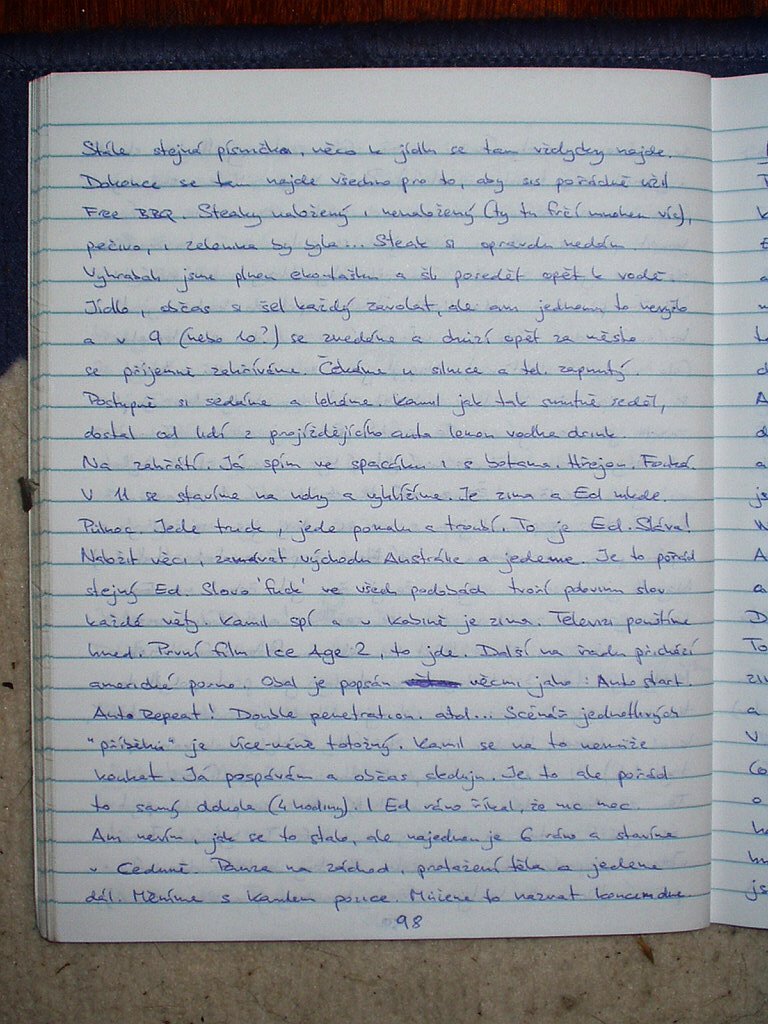 Stále stejná písnička, něco k jídlu se tam vždycky najde.
Dokonce se tam najde všechno pro to, aby sis pořádně užil
Free BBQ. Steaky naložený i nenaložený (ty tu frčí mnohem víc),
pečivo, i zelenina by byla... Steak si opravdu nedám
Vyhrabali jsme plnou ekotašku a šli posedět opět k vodě.
Jídlo, občas si šel každý zavolat, ale ani jednomu to nevyšlo
a v 9 (nebo 10?) se zvedáme a chůzí opět za město
se příjemně zahříváme. Čekáme u silnice a tel. zapnutý.
Postupně si sedáme a leháme. Kamil jak tak smutně seděl,
dostal od lidí z projíždějícího auta lemon vodka drink.
Na zahřátí. Já spím ve spacáku i s botama. Hřejou.
V 11 se stavíme na nohy a vyhlížíme. Je zima a Ed nikde.
Půlnoc. Jede truck, jede pomalu a troubí. To je Ed. Sláva!
Naložit věci, zamávat východu Austrálie a jedeme. Je to pořád
stejný Ed. Slovo 'fuck' ve všech podobách tvoří polovinu slov
každé věty. Kamil spí a v kabině je zima. Televizi pouštíme
hned. První film Ice Age 2, to jde. Další na řadu přichází
americké porno. Obal je popsán věcmi jako: Auto start.
Auto Repeat! Double penetration. atd... Scénář jednotlivých
"příběhů" je více-méně totožný. Kamil se na to nemůže
koukat. Já pospávám a občas sleduju. Je to ale pořád
to samý dokola (4 hodiny). I Ed ráno říkal, že nic moc.
Ani nevím, jak se to stalo, ale najednou je 6 ráno a stavíme
v Ceduně. Pauza na záchod, protažení těla a jedeme
dál. Měníme s Kamilem pozice. Můžeme to nazvat
98